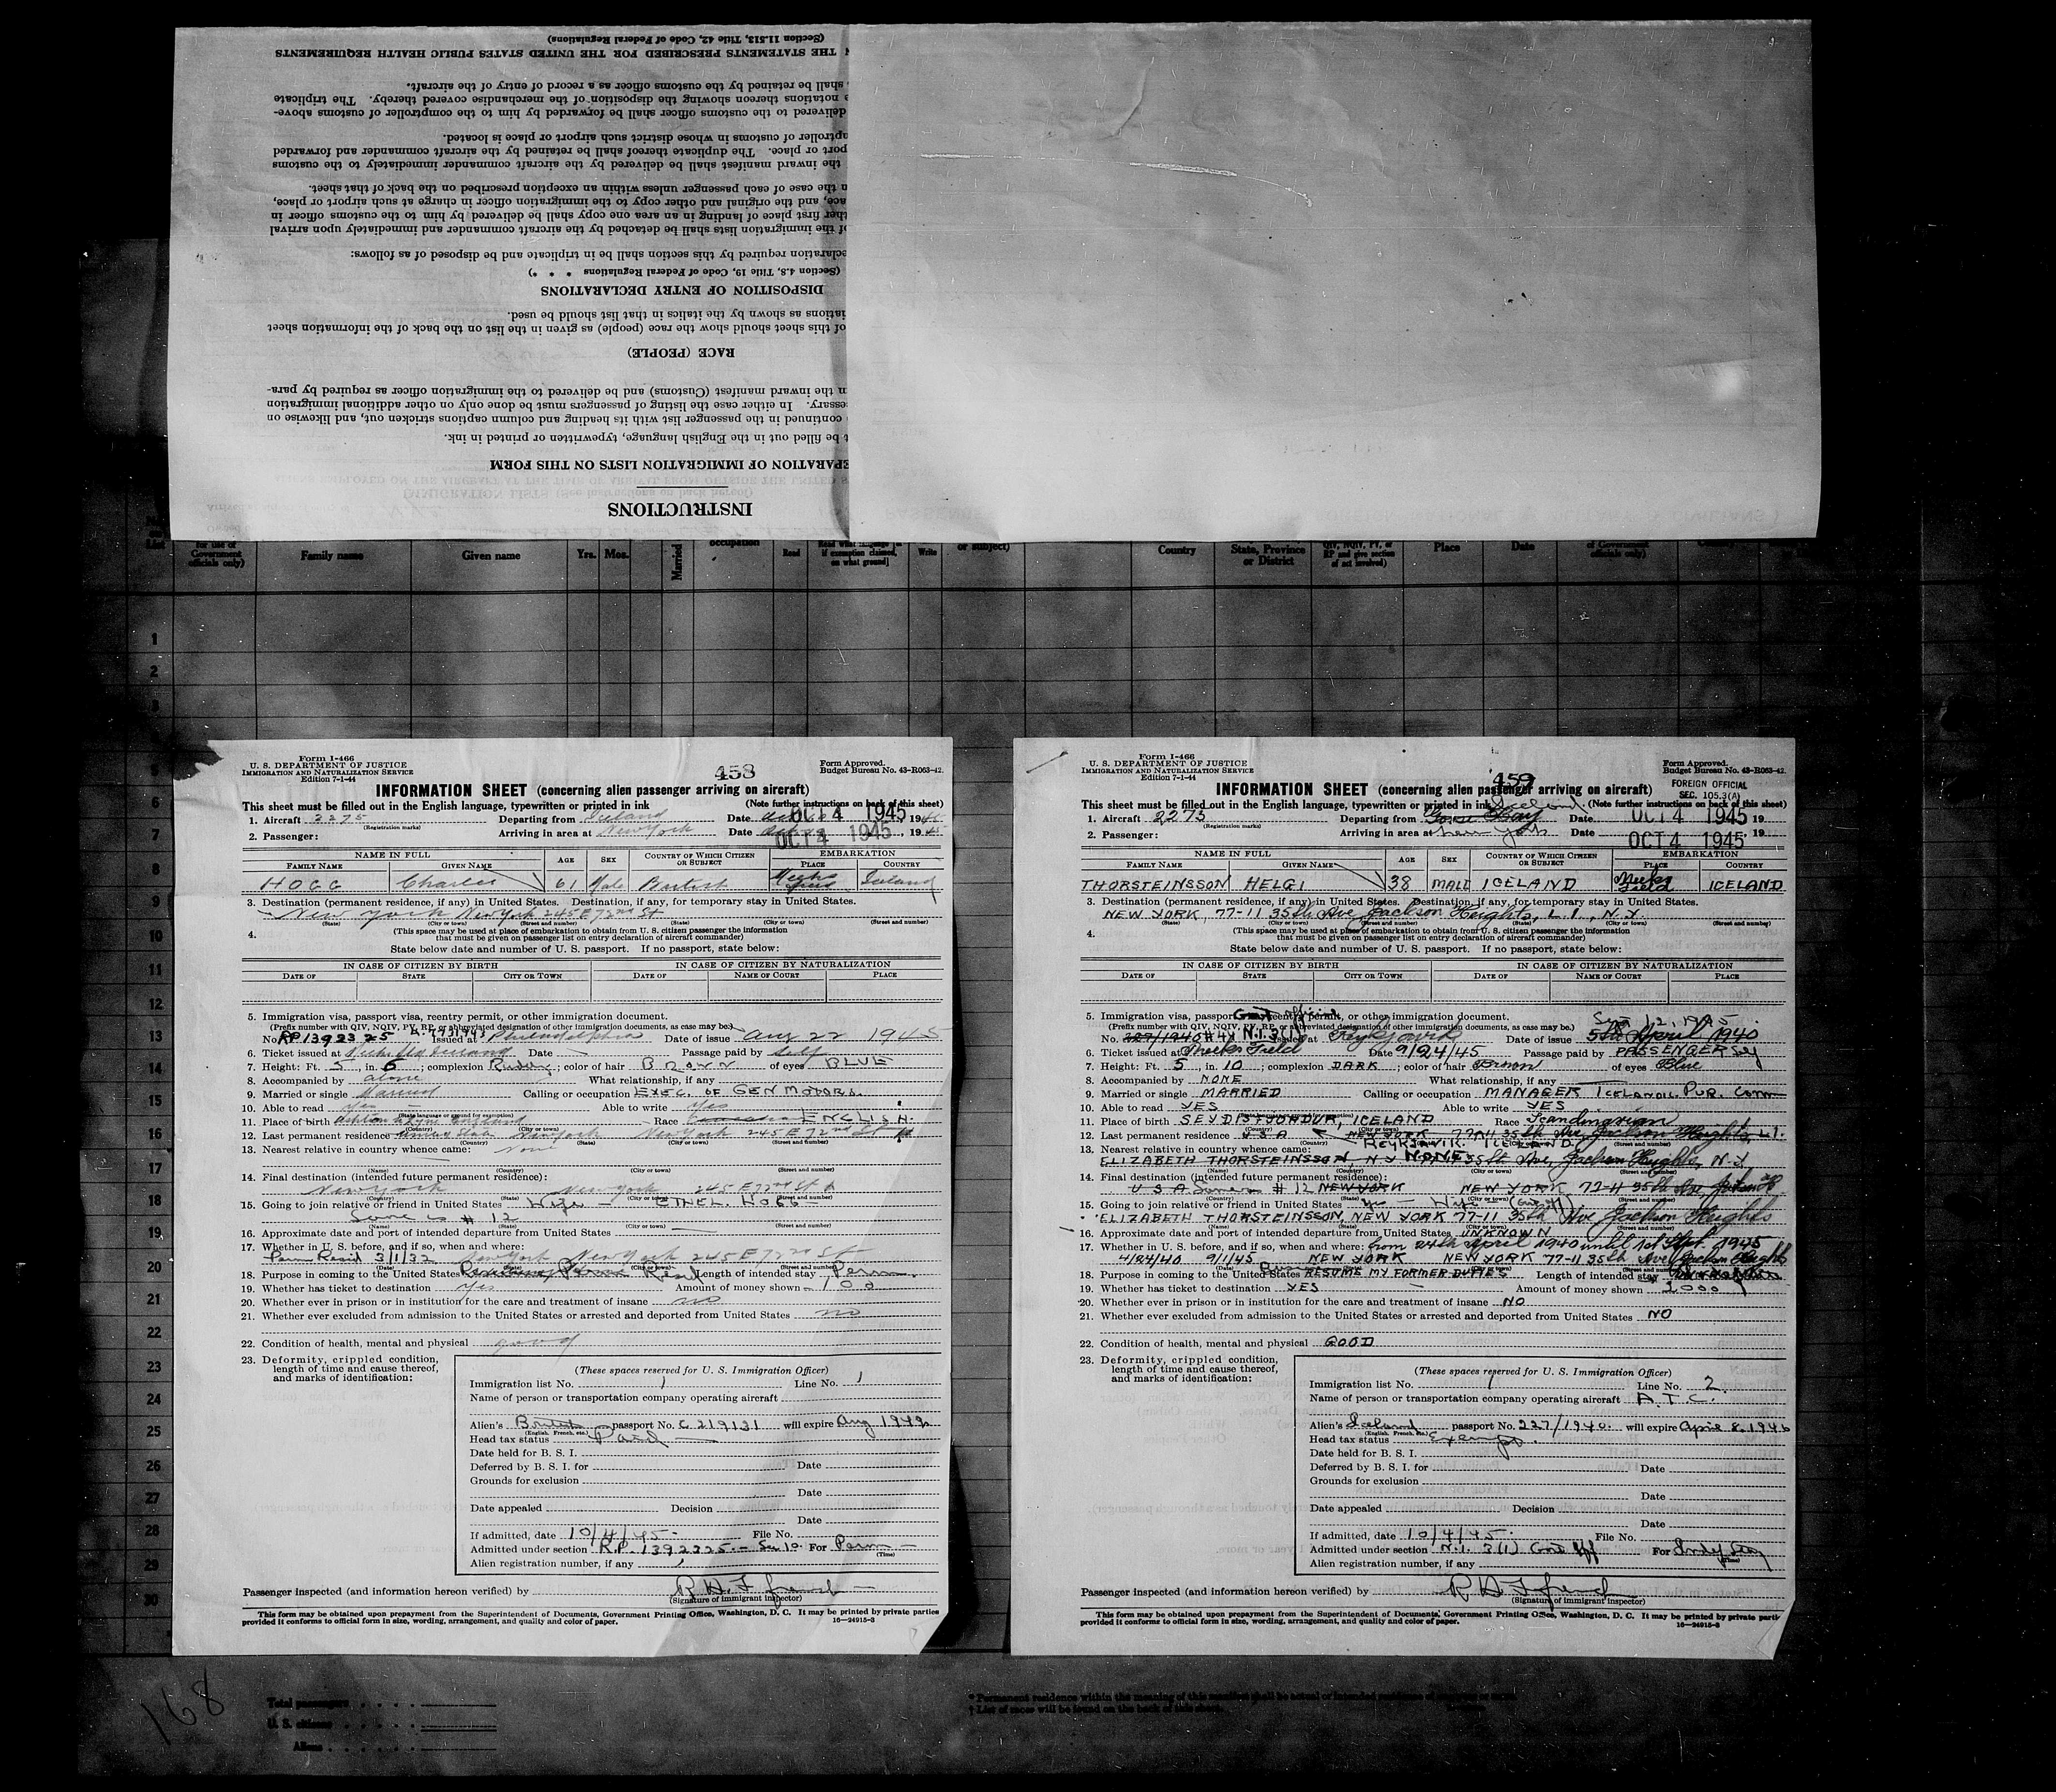 INSTRUCTIONS
PARATION OF IMMIGRATION LISTS ON THIS FORM
t be filled out in the English language, typewritten or printed in ink.
continued in the passenger list with its heading and column captions stricken out, and likewise on
essary. In either case the listing of passengers must be done only on other additional immigration
n the inward manifest (Customs) and be delivered to the immigration officer as required by para-
RACE (PEOPLE)
of this sheet should show the race (people) as given in the list on the back of the information sheet
iations as shown by the italics in that list should be used.
DISPOSITION OF ENTRY DECLARATIONS
(Section 4.8, Title 19, Code of Federal Regulations * * *)
eclaration required by this section shall be in triplicate and be disposed of as follows:
of the immigration lists shall be detached by the aircraft commander and immediately upon arrival
ther first place of landing in an area one copy shall be delivered by him to the customs officer in
ace, and the original and other copy to the immigration officer in charge at such airport or place,
n the case of each passenger unless within an exception prescribed on the back of that sheet.
the inward manifest shall be delivered by the aircraft commander immediately to the customs
port or place. The duplicate thereof shall be retained by the aircraft commander and forwarded
mptroller of customs in whose district such airport or place is located.
delivered to the customs officer shall be forwarded by him to the comptroller of customs above-
e notations thereon showing the disposition of the merchandise covered thereby. The triplicate
shall be retained by the customs officer as a record of entry of the aircraft.
N THE STATEMENTS PRESCRIBED FOR THE UNITED STATES PUBLIC HEALTH REQUIREMENTS
(Section 11.513, Title 42, Code of Federal Regulations)
Family name Given name Yrs. Mos. Married occupation Read Write or subject) Country State, Province or District Place Date
Form I-466
U. S. DEPARTMENT OF JUSTICE
IMMIGRATION AND NATURALIZATION SERVICE
Edition 7-1-44
458
Form Approved.
Budget Bureau No. 43-R063-42.
INFORMATION SHEET (concerning alien passenger arriving on aircraft)
This sheet must be filled out in the English language, typewritten or printed in ink (Note further instructions on back of this sheet)
1. Aircraft 2275 Departing from Iceland Date OCT 4 1945, 19
(Registration marks)
2. Passenger: Arriving in area at New York Date OCT 4 1945, 1945
NAME IN FULL AGE SEX COUNTRY OF WHICH CITIZEN OR SUBJECT EMBARKATION
FAMILY NAME GIVEN NAME PLACE COUNTRY
HOGG Charles 61 Male British Meeks Field Iceland
3. Destination (permanent residence, if any) in United States. Destination, if any, for temporary stay in United States.
New York New York 245 E 72nd St
(State) (City or town) (Street and number) (State) (City or town) (Street and number)
4. (This space may be used at place of embarkation to obtain from U. S. citizen passenger the information
that must be given on passenger list on entry declaration of aircraft commander)
State below date and number of U. S. passport. If no passport, state below:
IN CASE OF CITIZEN BY BIRTH IN CASE OF CITIZEN BY NATURALIZATION
DATE OF STATE CITY OR TOWN DATE OF NAME OF COURT PLACE
5. Immigration visa, passport visa, reentry permit, or other immigration document.
(Prefix number with QIV, NQIV, PV, RP, or abbreviated designation of other immigration documents, as case may be.)
No. RP 1392325 Issued at Philadelphia Date of issue Aug 22 1945
6. Ticket issued at Meeks Fld Iceland Date Passage paid by Self
7. Height: Ft. 5, in. 6; complexion Ruddy; color of hair BROWN of eyes BLUE
8. Accompanied by alone What relationship, if any
9. Married or single Married Calling or occupation EXEC. OF GEN MOTORS.
10. Able to read Yes Able to write Yes
11. Place of birth Ashton U Lyne England Race ENGLISH.
12. Last permanent residence United States New York New York 245 E 72nd St
13. Nearest relative in country whence came: None
(Name) (Country) (City or town) (Street and number)
14. Final destination (intended future permanent residence):
New York New York 245 E 72nd St
(Country) (State) (City or town) (Street and number)
15. Going to join relative or friend in United States Wife - ETHEL HOGG
Same as # 12
(Name) (State) (City or town) (Street and number)
16. Approximate date and port of intended departure from United States
17. Whether in U. S. before, and if so, when and where:
Perm Resid 3/1/32 New York New York 245 E 72nd St
18. Purpose in coming to the United States Length of intended stay Perm.
19. Whether has ticket to destination Yes Amount of money shown 100
20. Whether ever in prison or in institution for the care and treatment of insane no
21. Whether ever excluded from admission to the United States or arrested and deported from United States no
22. Condition of health, mental and physical good
23. Deformity, crippled condition,
length of time and cause thereof,
and marks of identification:
(These spaces reserved for U. S. Immigration Officer)
Immigration list No. 1 Line No. 1
Name of person or transportation company operating aircraft
Alien's British passport No. C 219131 will expire Aug 1949
(English, French, etc.)
Head tax status Paid
Date held for B. S. I.
Deferred by B. S. I. for Date
Grounds for exclusion
Date
Date appealed Decision
Date
If admitted, date 10/4/45 File No.
Admitted under section R.P. 1392325 - Sec 10. For Perm
(Time)
Alien registration number, if any
Passenger inspected (and information hereon verified) by
(Signature of immigrant inspector)
This form may be obtained upon prepayment from the Superintendent of Documents, Government Printing Office, Washington, D. C. It may be printed by private parties
provided it conforms to official form in size, wording, arrangement, and quality and color of paper. 16—24915-3
Form I-466
U. S. DEPARTMENT OF JUSTICE
IMMIGRATION AND NATURALIZATION SERVICE
Edition 7-1-44
459
Form Approved.
Budget Bureau No. 43-R063-42.
FOREIGN OFFICIAL
SEC. 105.3(A)
INFORMATION SHEET (concerning alien passenger arriving on aircraft)
This sheet must be filled out in the English language, typewritten or printed in ink (Note further instructions on back of this sheet)
1. Aircraft 2273 Departing from Goose Bay Iceland Date OCT 4 1945 19
(Registration marks)
2. Passenger: Arriving in area at New York Date OCT 4 1945
NAME IN FULL AGE SEX COUNTRY OF WHICH CITIZEN OR SUBJECT EMBARKATION
FAMILY NAME GIVEN NAME PLACE COUNTRY
THORSTEINSSON HELGI 38 MALE ICELAND Meeks Field ICELAND
3. Destination (permanent residence, if any) in United States. Destination, if any, for temporary stay in United States.
NEW YORK, 77-11 35th Ave, Jackson Heights, L.I., N.Y.
(State) (City or town) (Street and number) (State) (City or town) (Street and number)
4. (This space may be used at place of embarkation to obtain from U. S. citizen passenger the information
that must be given on passenger list on entry declaration of aircraft commander)
State below date and number of U. S. passport. If no passport, state below:
IN CASE OF CITIZEN BY BIRTH IN CASE OF CITIZEN BY NATURALIZATION
DATE OF STATE CITY OR TOWN DATE OF NAME OF COURT PLACE
5. Immigration visa, passport visa, reentry permit, or other immigration document.
(Prefix number with QIV, NQIV, PV, RP, or abbreviated designation of other immigration documents, as case may be.) Sept 12, 1945
No. 227/1940 #44 N.I. 3(1) Issued at Reykjavik Date of issue 5th April 1940
6. Ticket issued at Meeks Field Date 9/24/45 Passage paid by PASSENGER
7. Height: Ft. 5, in. 10; complexion DARK; color of hair Brown of eyes Blue
8. Accompanied by NONE What relationship, if any
9. Married or single MARRIED Calling or occupation MANAGER Icelandic Pur. Comm
10. Able to read YES Able to write YES
11. Place of birth SEYDISFJORDUR, ICELAND Race Scandinavian
12. Last permanent residence U S A NEW YORK 77-11 35th Ave Jackson Heights, L.I.
REYKJAVIK ICELAND
13. Nearest relative in country whence came: NONE
ELIZABETH THORSTEINSSON, N.Y. 77-11 35th Ave, Jackson Heights, N.Y.
14. Final destination (intended future permanent residence):
U S A Same as # 12 NEW YORK NEW YORK 77-11 35th Ave Jackson H.
15. Going to join relative or friend in United States Yes - Wife
ELIZABETH THORSTEINSSON, NEW YORK 77-11 35th Ave Jackson Heights
16. Approximate date and port of intended departure from United States UNKNOWN
17. Whether in U. S. before, and if so, when and where: from 24th April 1940 until 1st Sept. 1945
4/24/40 9/1/45 NEW YORK NEW YORK 77-11 35th Ave Jackson Heights
18. Purpose in coming to the United States RESUME MY FORMER DUTIES Length of intended stay
19. Whether has ticket to destination YES Amount of money shown 1000
20. Whether ever in prison or in institution for the care and treatment of insane NO
21. Whether ever excluded from admission to the United States or arrested and deported from United States NO
22. Condition of health, mental and physical GOOD
23. Deformity, crippled condition,
length of time and cause thereof,
and marks of identification:
(These spaces reserved for U. S. Immigration Officer)
Immigration list No. 1 Line No. 2.
Name of person or transportation company operating aircraft A.T.C.
Alien's Iceland passport No. 227/1940. will expire April 8, 1946
(English, French, etc.)
Head tax status Exempt.
Date held for B. S. I.
Deferred by B. S. I. for Date
Grounds for exclusion
Date
Date appealed Decision
Date
If admitted, date 10/4/45 File No.
Admitted under section N.I. 3(1) Govt Off For Indef Stay
(Time)
Alien registration number, if any
Passenger inspected (and information hereon verified) by
(Signature of immigrant inspector)
This form may be obtained upon prepayment from the Superintendent of Documents, Government Printing Office, Washington, D. C. It may be printed by private parti
provided it conforms to official form in size, wording, arrangement, and quality and color of paper. 16—24915-3
1
2
3
5
6
7
8
9
10
11
12
13
14
15
16
17
18
19
20
21
22
23
24
25
26
27
28
29
30
168
Total passengers
U. S. citizens
Aliens
* Permanent residence within the meaning of this manifest shall be actual or intended residence
† List of races will be found on the back of this sheet.